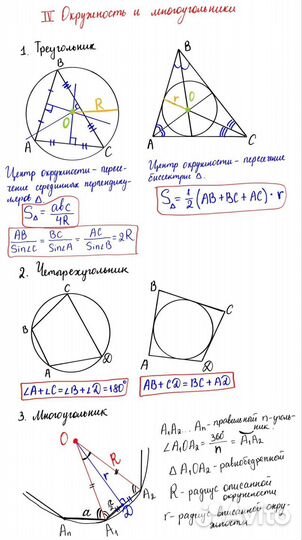 IV Окружность и многоугольники
1. Треугольник
B
O
R
A
C
B
r
O
A
C
Центр окружности - пересе-
чение серединных перпендику-
ляров Δ.
S_Δ = abc / 4R
AB / Sin∠C = BC / Sin∠A = AC / Sin∠B = 2R
Центр окружности - пересечение
биссектрис Δ.
S_Δ = 1/2 (AB + BC + AC) · r
2. Четырехугольник
C
B
A
D
B
C
A
D
∠A+∠C=∠B+∠D=180°
AB+CD=BC+AD
3. Многоугольник
O
R
r
a
An
A1
A2
A1A2... An - правильный n-уголь-
ник
∠A1OA2 = 360° / n = A1A2
Δ A1OA2 - равнобедренный
R - радиус описанной
окружности
r - радиус вписанной окру-
жности